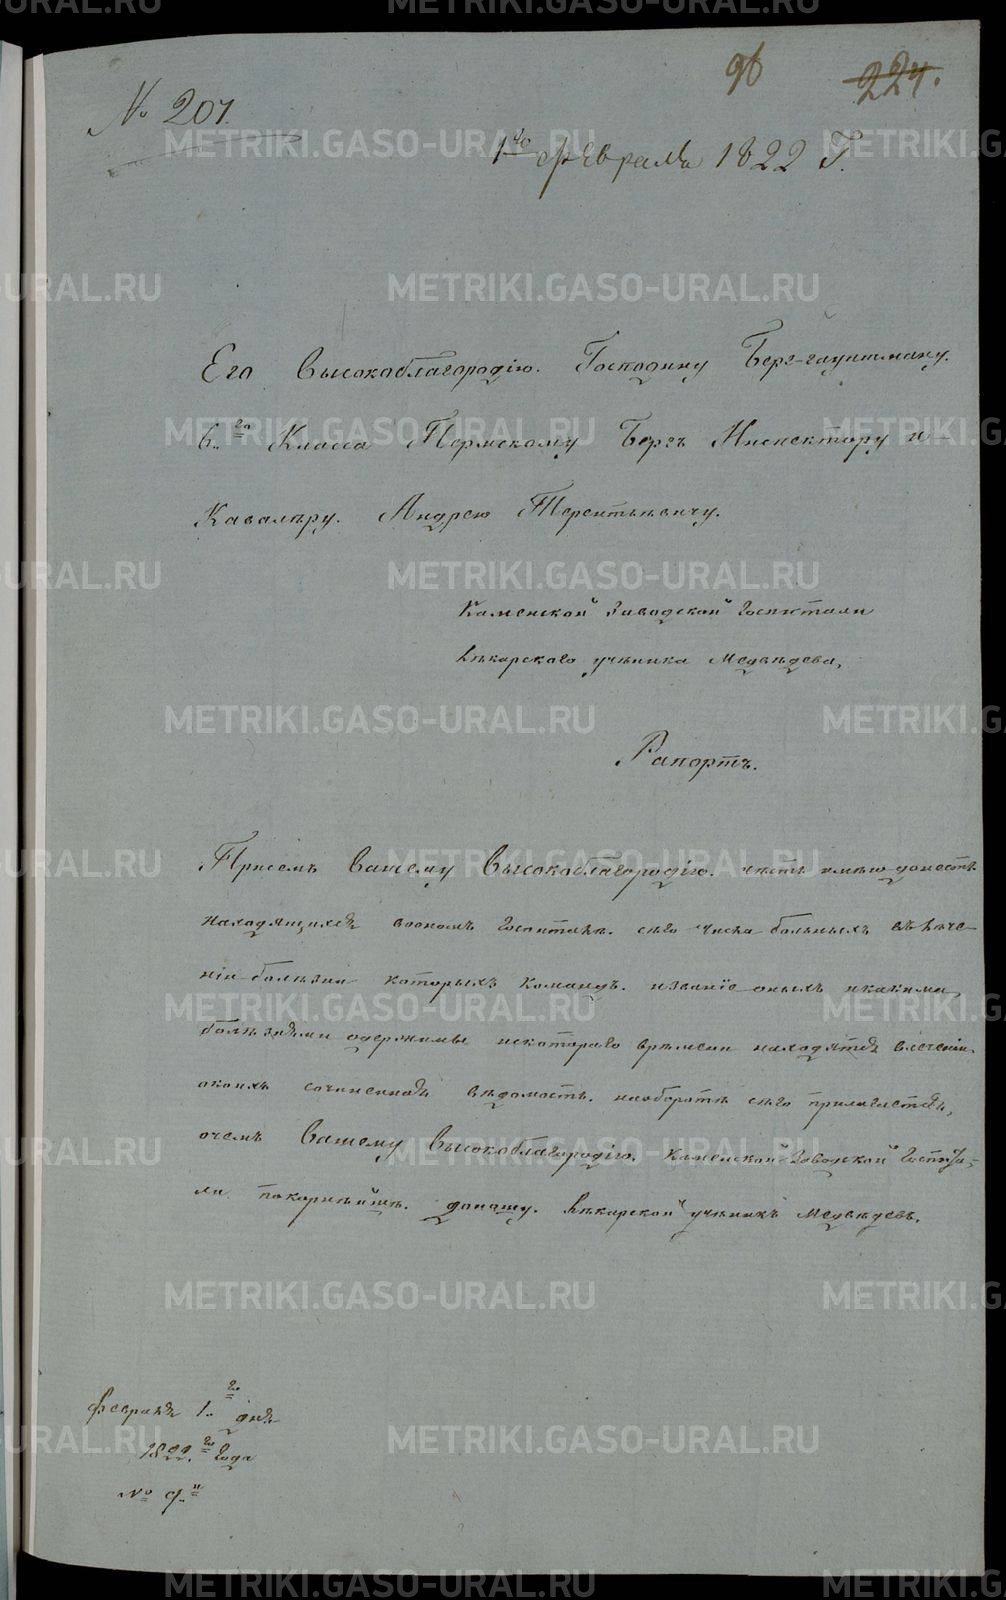 96 224.
№ 201.
1го Февраля 1822 Г.
Его Высокоблагородію. Господину Берг-гауптману.
6.го Класса Пермскому Бергъ Инспектору и
Кавалѣру. Андрею Терентьевичу.
Каменской Заводской Госпитали
Лѣкарского ученика Медвѣдева,
Рапортъ.
Присемъ Вашему Высокоблагородію. честь имѣю донесть
находящихся воономъ Госпиталѣ. сего числа больныхъ въ лѣче-
ніи болѣзни которыхъ командъ. изваніе оныхъ икакими
болѣзнями одержимы искотораго времени находятся влеченіи,
окоихъ сочиненная вѣдомость. наоборотѣ сего прилагается,
очемъ Вашему Высокоблагородію. Каменской Заводской Госпита-
ли покорнѣйше. доношу. Лѣкарской ученикъ Медвѣдевъ.
Февраля 1.го дня
1822.го Года
№ 9.й
METRIKI.GASO-URAL.RU